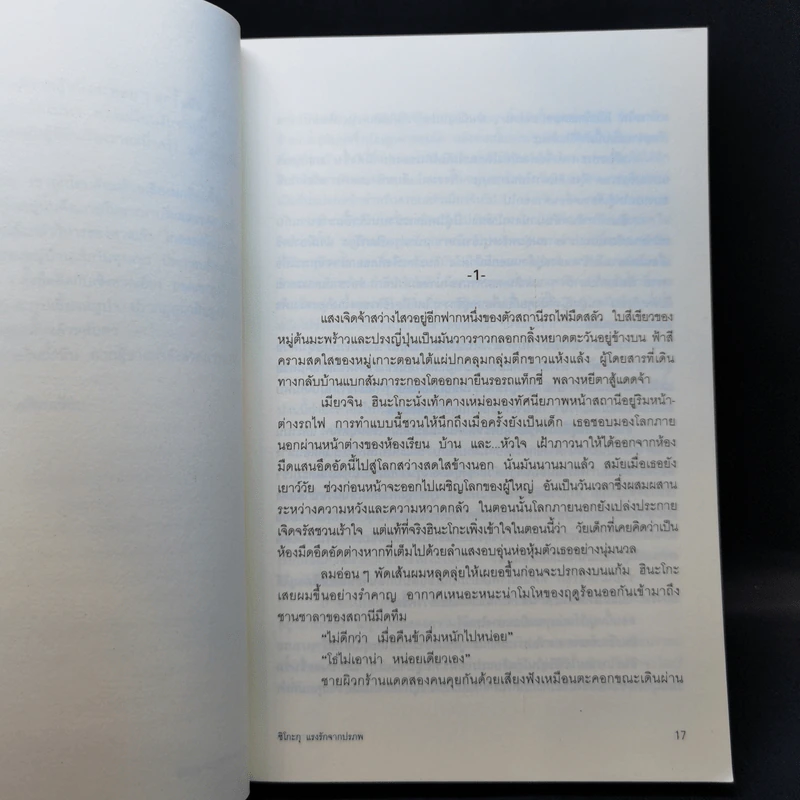 -1-
แสงเจิดจ้าสว่างไสวอยู่อีกฟากหนึ่งของตัวสถานีรถไฟมืดสลัว ใบสีเขียวของ
หมู่ต้นมะพร้าวและปรงญี่ปุ่นเป็นมันวาวราวกลอกกลิ้งหยาดตะวันอยู่ข้างบน ฟ้าสี
ครามสดใสของหมู่เกาะตอนใต้แผ่ปกคลุมกลุ่มตึกขาวแห้งแล้ง ผู้โดยสารที่เดิน
ทางกลับบ้านแบกสัมภาระกองโตออกมายืนรอรถแท็กซี่ พลางหยีตาสู้แดดจ้า
เมียวจิน ฮินะโกะนั่งเท้าคางเหม่อมองทัศนียภาพหน้าสถานีอยู่ริมหน้า-
ต่างรถไฟ การทำแบบนี้ชวนให้นึกถึงเมื่อครั้งยังเป็นเด็ก เธอชอบมองโลกภาย
นอกผ่านหน้าต่างของห้องเรียน บ้าน และ...หัวใจ เฝ้าภาวนาให้ได้ออกจากห้อง
มืดแสนอึดอัดนี้ไปสู่โลกสว่างสดใสข้างนอก นั่นมันนานมาแล้ว สมัยเมื่อเธอยัง
เยาว์วัย ช่วงก่อนหน้าจะออกไปเผชิญโลกของผู้ใหญ่ อันเป็นวันเวลาซึ่งผสมผสาน
ระหว่างความหวังและความหวาดกลัว ในตอนนั้นโลกภายนอกยังเปล่งประกาย
เจิดจรัสชวนเร้าใจ แต่แท้ที่จริงฮินะโกะเพิ่งเข้าใจในตอนนี้ว่า วัยเด็กที่เคยคิดว่าเป็น
ห้องมืดอึดอัดต่างหากที่เต็มไปด้วยลำแสงอบอุ่นห่อหุ้มตัวเธออย่างนุ่มนวล
ลมอ่อนๆ พัดเส้นผมหลุดลุ่ยให้เผยอขึ้นก่อนจะปรกลงบนแก้ม ฮินะโกะ
เสยผมขึ้นอย่างรำคาญ อากาศเหนอะหนะน่าโมโหของฤดูร้อนออกันเข้ามาถึง
ชานชาลาของสถานีมืดทึม
"ไม่ดีกว่า เมื่อคืนซ้าดื่มหนักไปหน่อย"
"โธ่ไม่เอาน่า หน่อยเดียวเอง"
ชายผิวกร้านแดดสองคนคุยกันด้วยเสียงฟังเหมือนตะคอกขณะเดินผ่าน
ชิโกะกุ แรงรักจากปรภพ 17